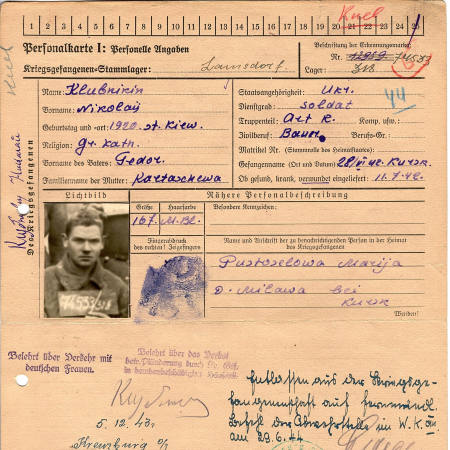 1 2 3 4 5 6 7 8 9 10 11 12 13 14 15 16 17 18 19 20 21 22 23 24 25
Personalkarte I: Personelle Angaben
Beschriftung der Erkennungsmarke
Kriegsgefangenen-Stammlager: Lamsdorf.
Nr.
Lager:
Des Kriegsgefangenen
Name: Klubnikin
Vorname: Nikolaj
Geburtstag und -ort: 1920. st. Kiew.
Religion: Gr. Kath.
Vorname des Vaters: Fedor.
Familienname der Mutter: Kartaschewa
Staatsangehörigkeit: Ukr.
Dienstgrad: soldat
Truppenteil: Art R. Komp. usw.:
Zivilberuf: Bauer. Berufs-Gr.:
Matrikel Nr. (Stammrolle des Heimatstaates):
Gefangennahme (Ort und Datum): 42. Kursk.
Ob gesund, krank, verwundet eingeliefert: 11.7.42.
44
Lichtbild
Nähere Personalbeschreibung
Größe
Haarfarbe
Besondere Kennzeichen:
167.
Fingerabdruck
des rechten! Zeigefingers
Name und Anschrift der zu benachrichtigenden Person in der Heimat
des Kriegsgefangenen
Pustoselowa Marija
D. Milawa bei
Kursk
Wenden!
Belehrt über Verkehr mit
deutschen Frauen.
Belehrt über das Verbot
betr. Plünderung durch
in bombenbeschädigten
5. 12. 43.
Kremburg
Entlassen aus der Kriegsge-
fangenschaft auf fernmündl.
Befehl der Abwehrstelle im W.K.
am 29.6.44